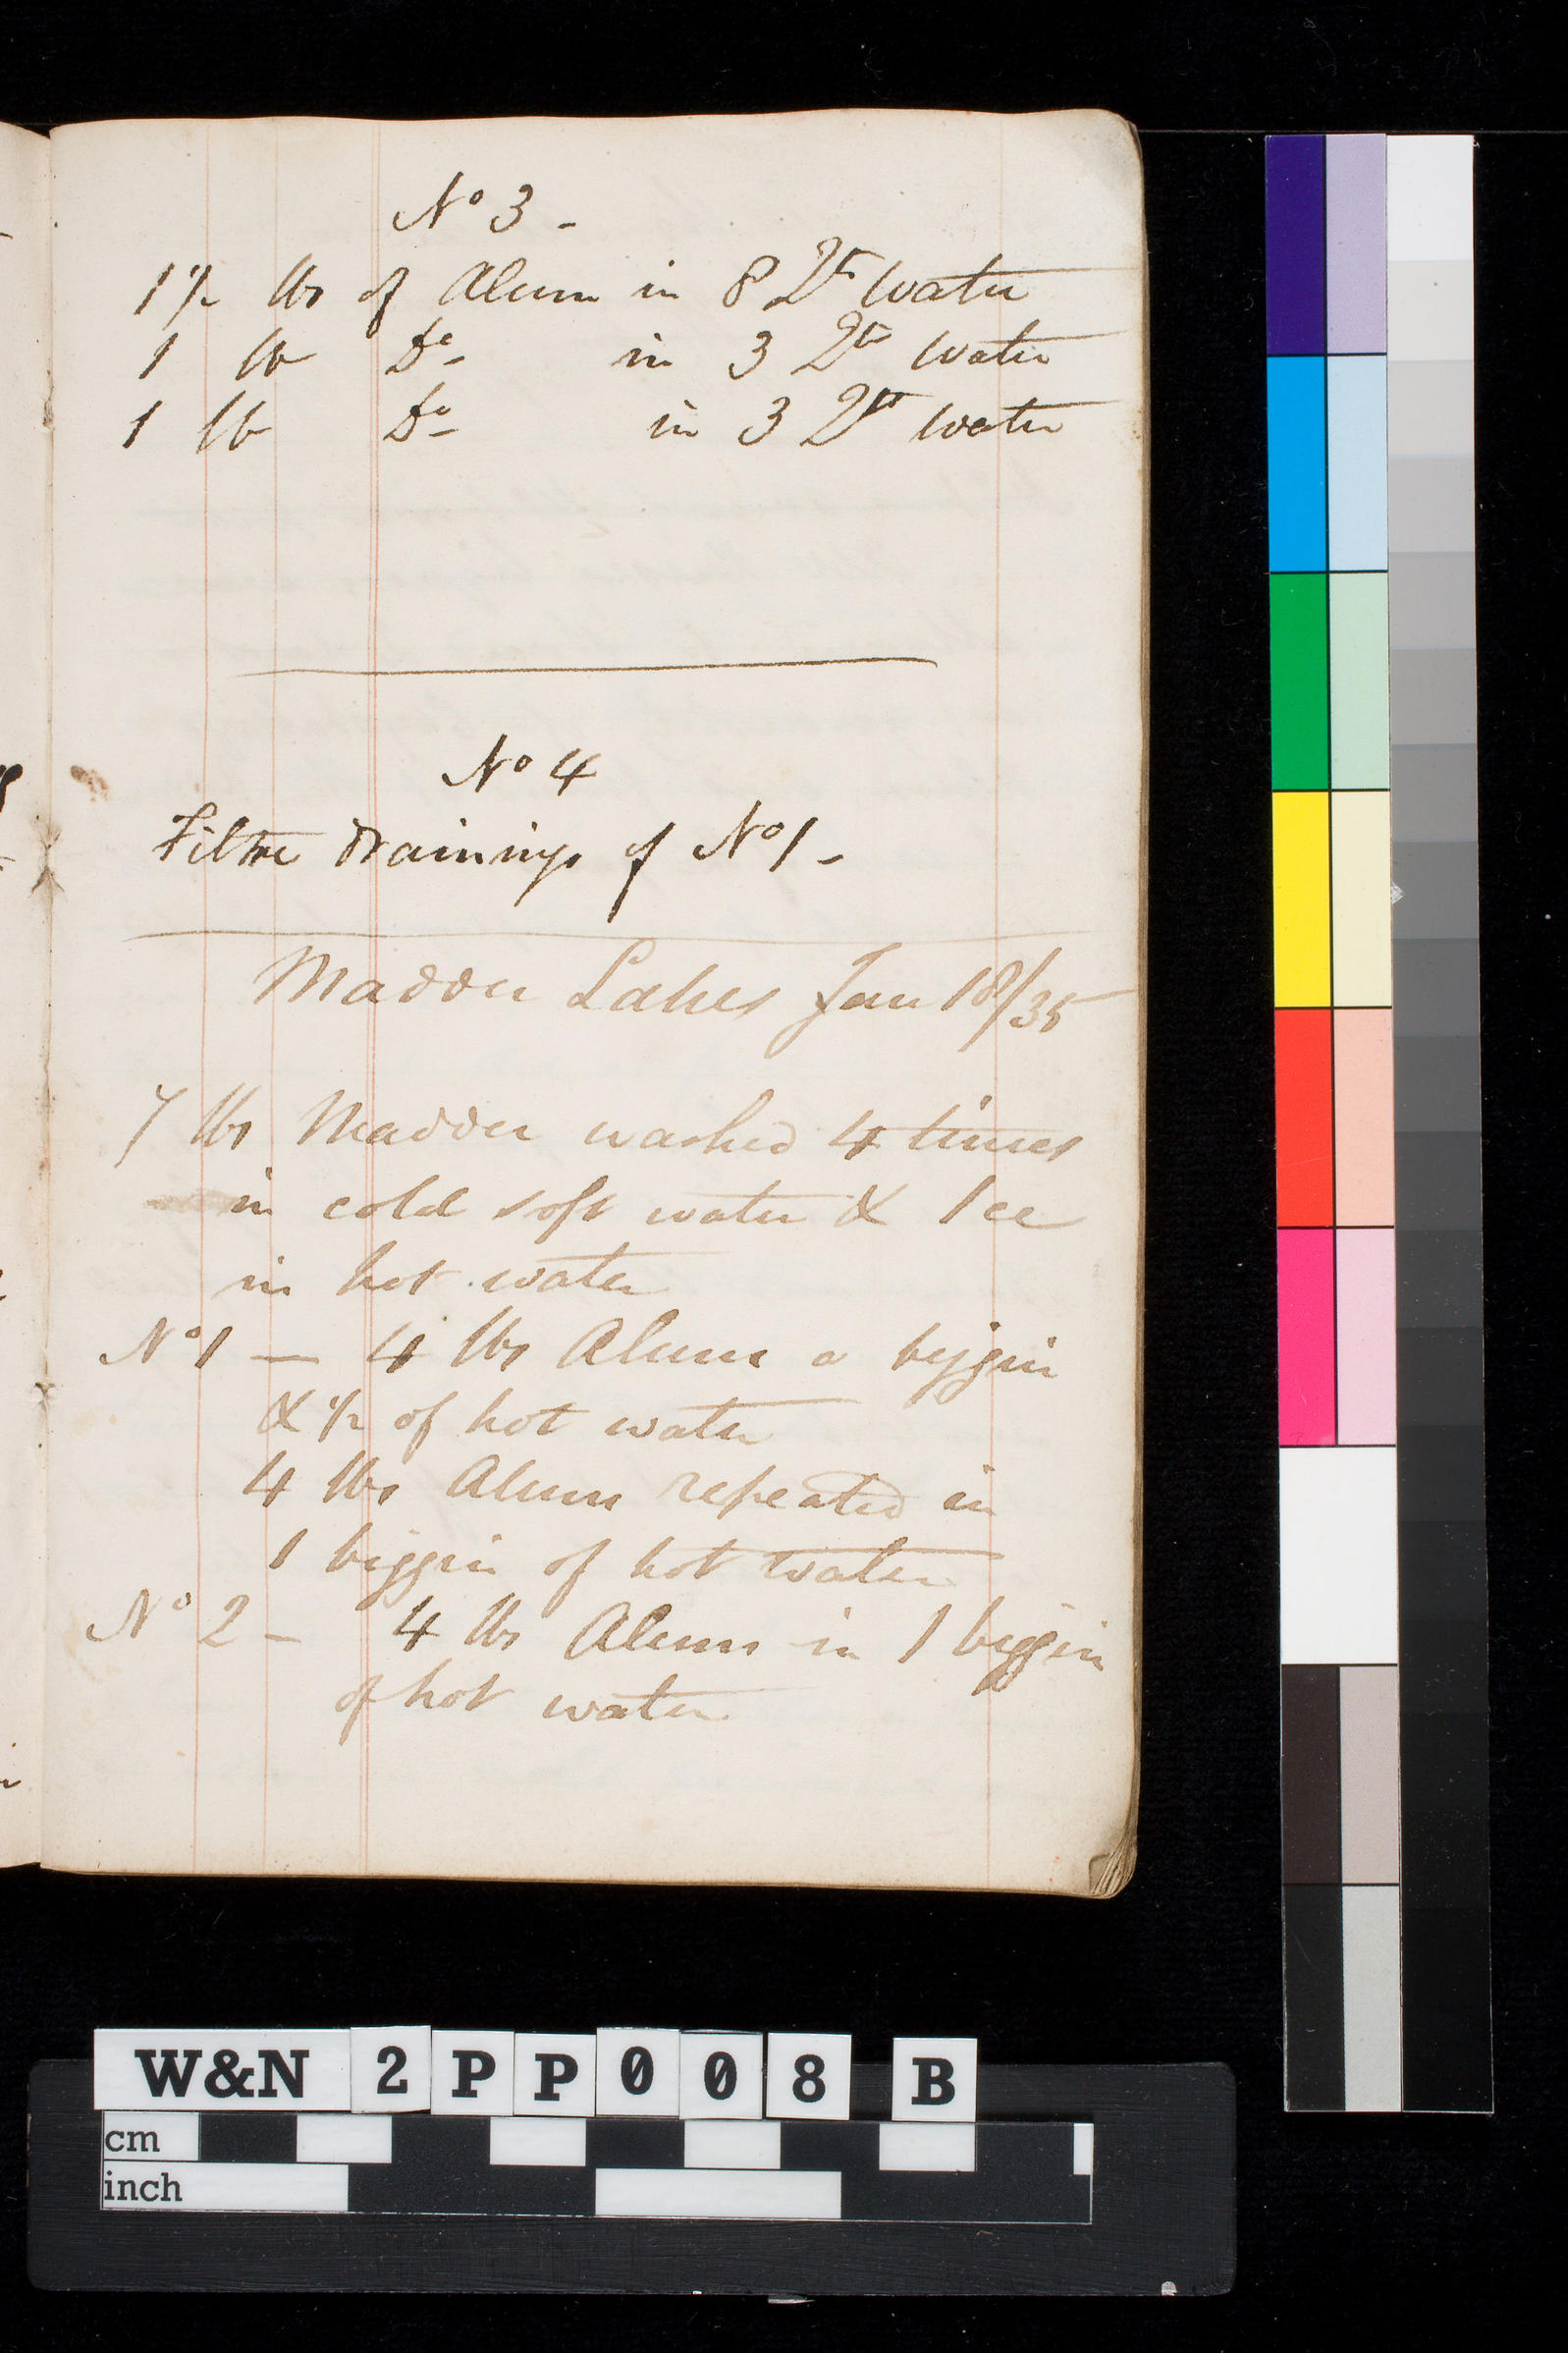 No 3 -
1 1/2 lbs of Alum in 8 Qts water
1 lb Do- in 3 Qts water
1 lb Do- in 3 Qts water
No 4
Filtre drainings of No 1 -
Madder Lakes Jan 18/35
7 lbs Madder washed 4 times
in cold soft water & 1ce
in hot water
No 1 — 4 lbs Alum a biggin
& 1/2 of hot water
4 lbs Alum repeated in
1 biggin of hot water
No 2 - 4 lbs Alum in 1 biggin
of hot water
W&N 2PP008 B
cm
inch